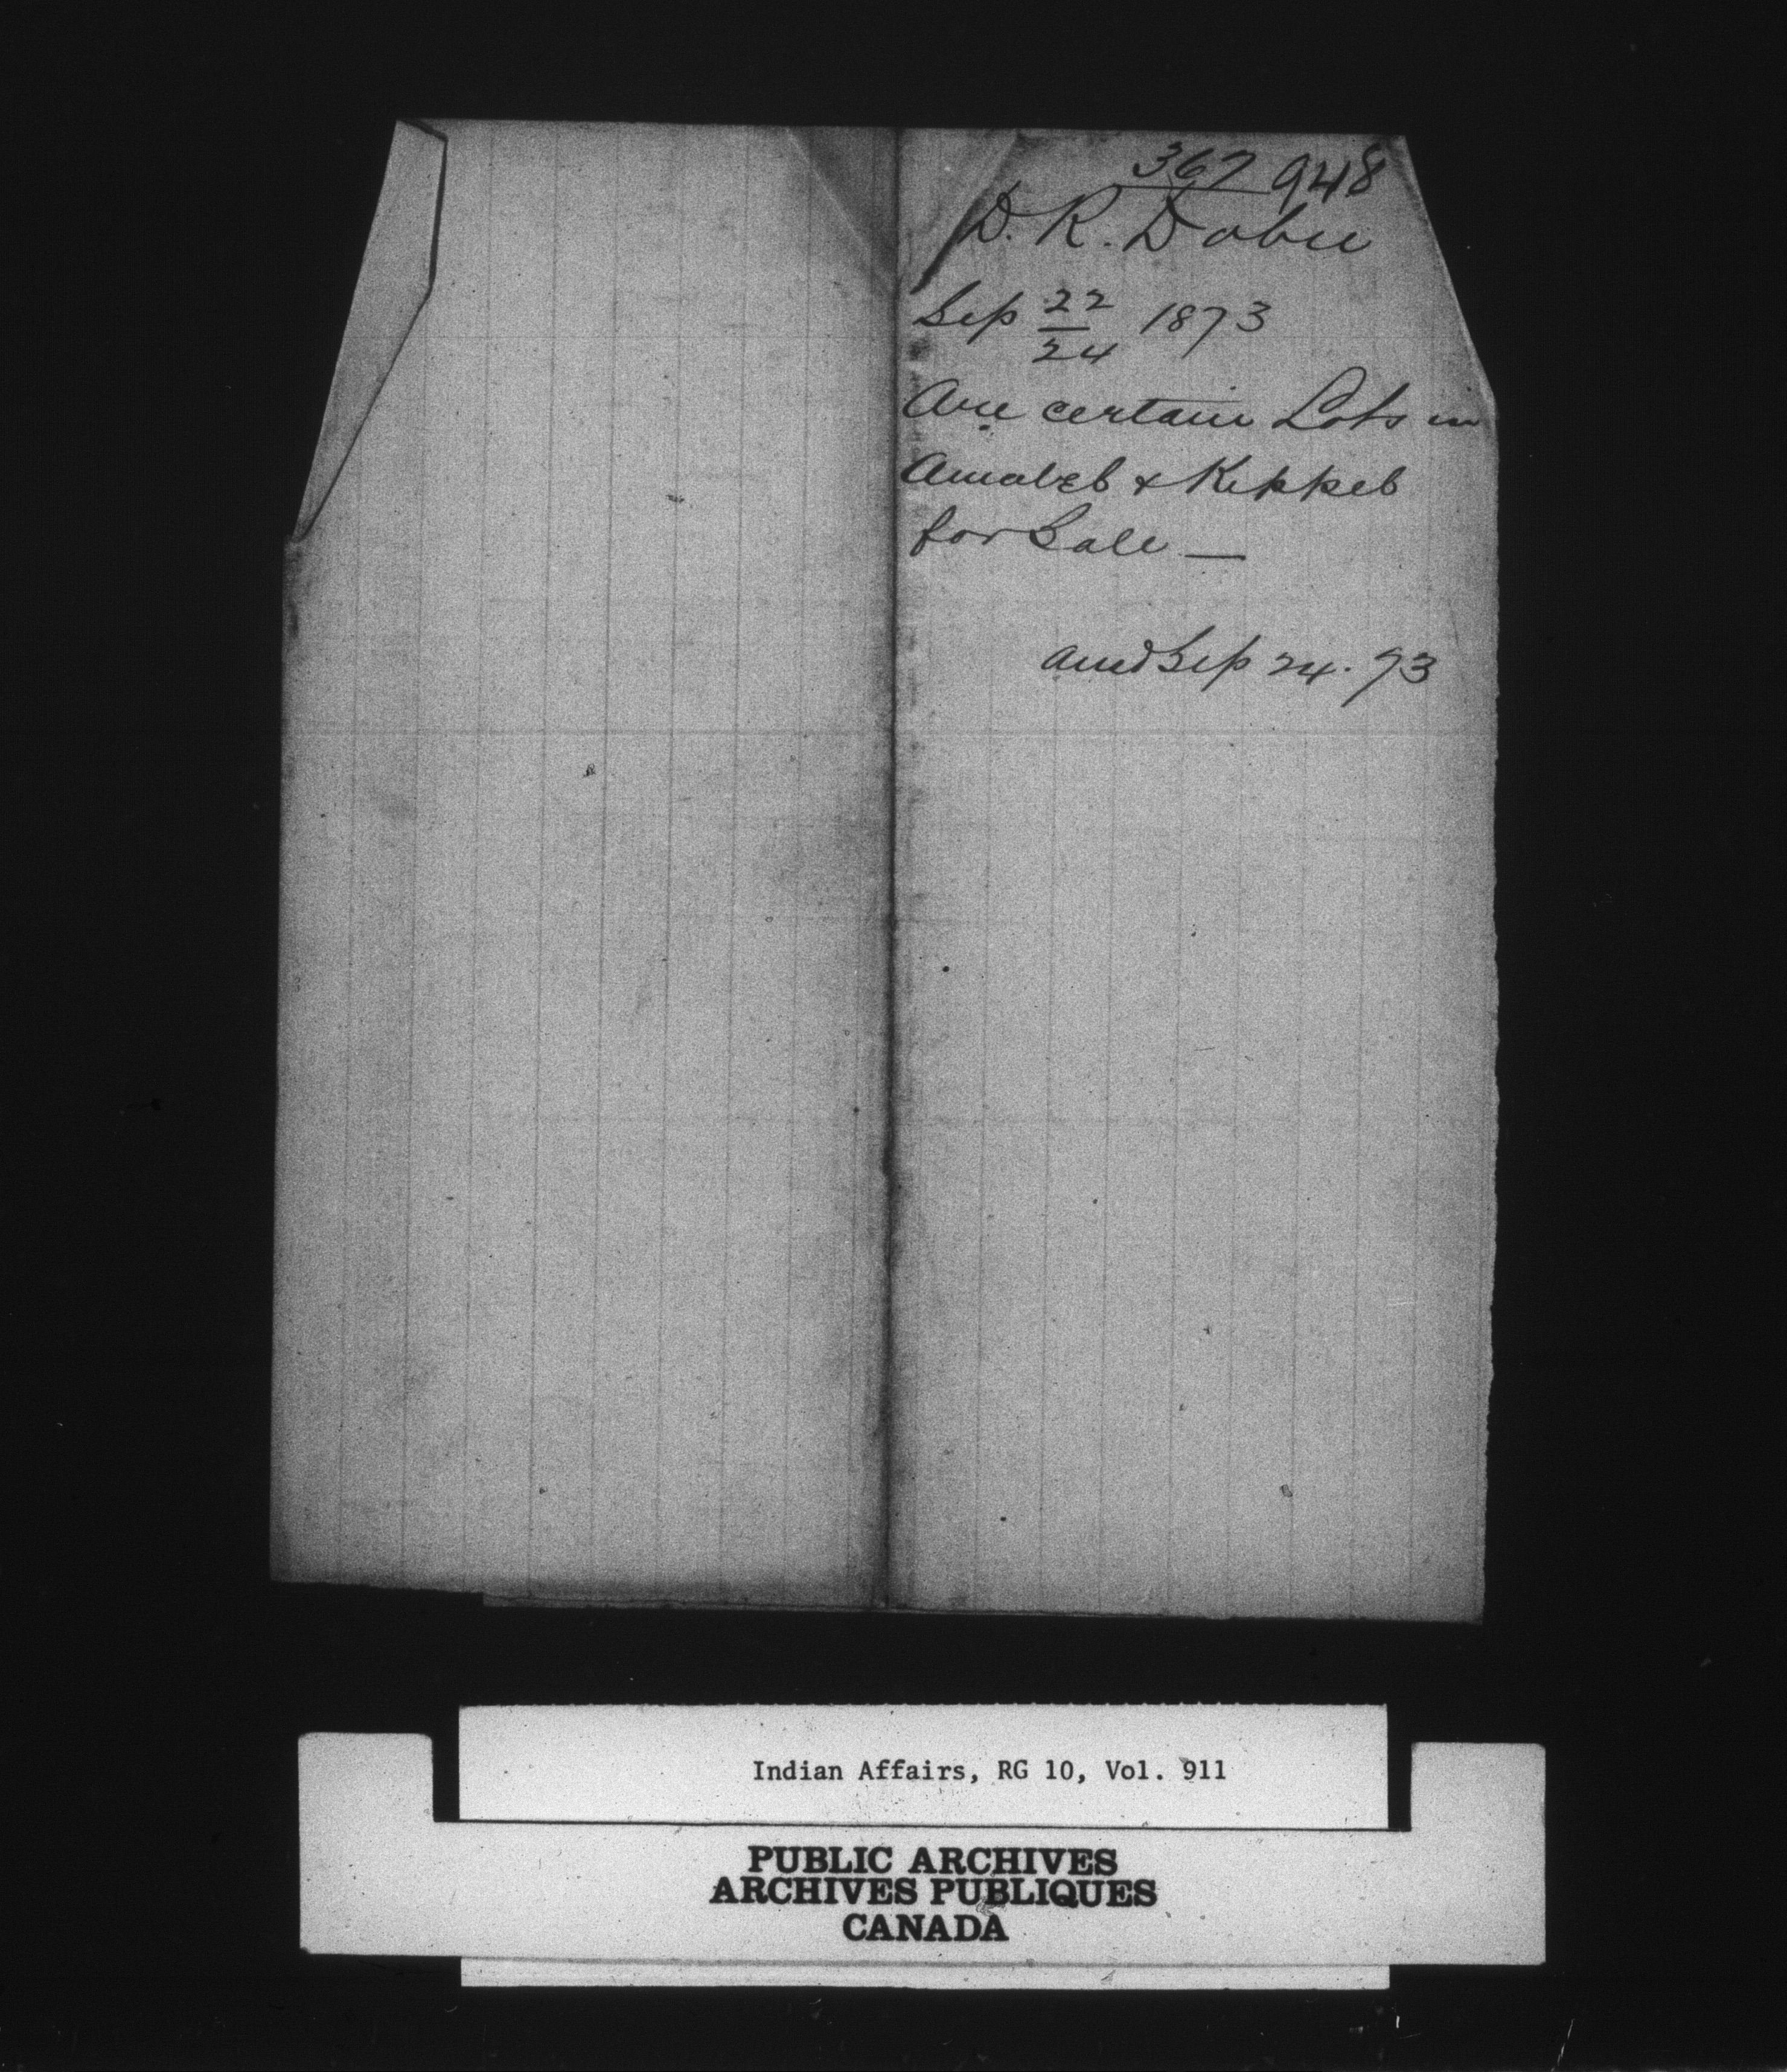 367 948
D. R. Dobie
Sep 22/24 1873
Are certain Lots in
Amabel & Keppel
for Sale —
Ansd Sep 24. 73
Indian Affairs, RG 10, Vol. 911
PUBLIC ARCHIVES
ARCHIVES PUBLIQUES
CANADA